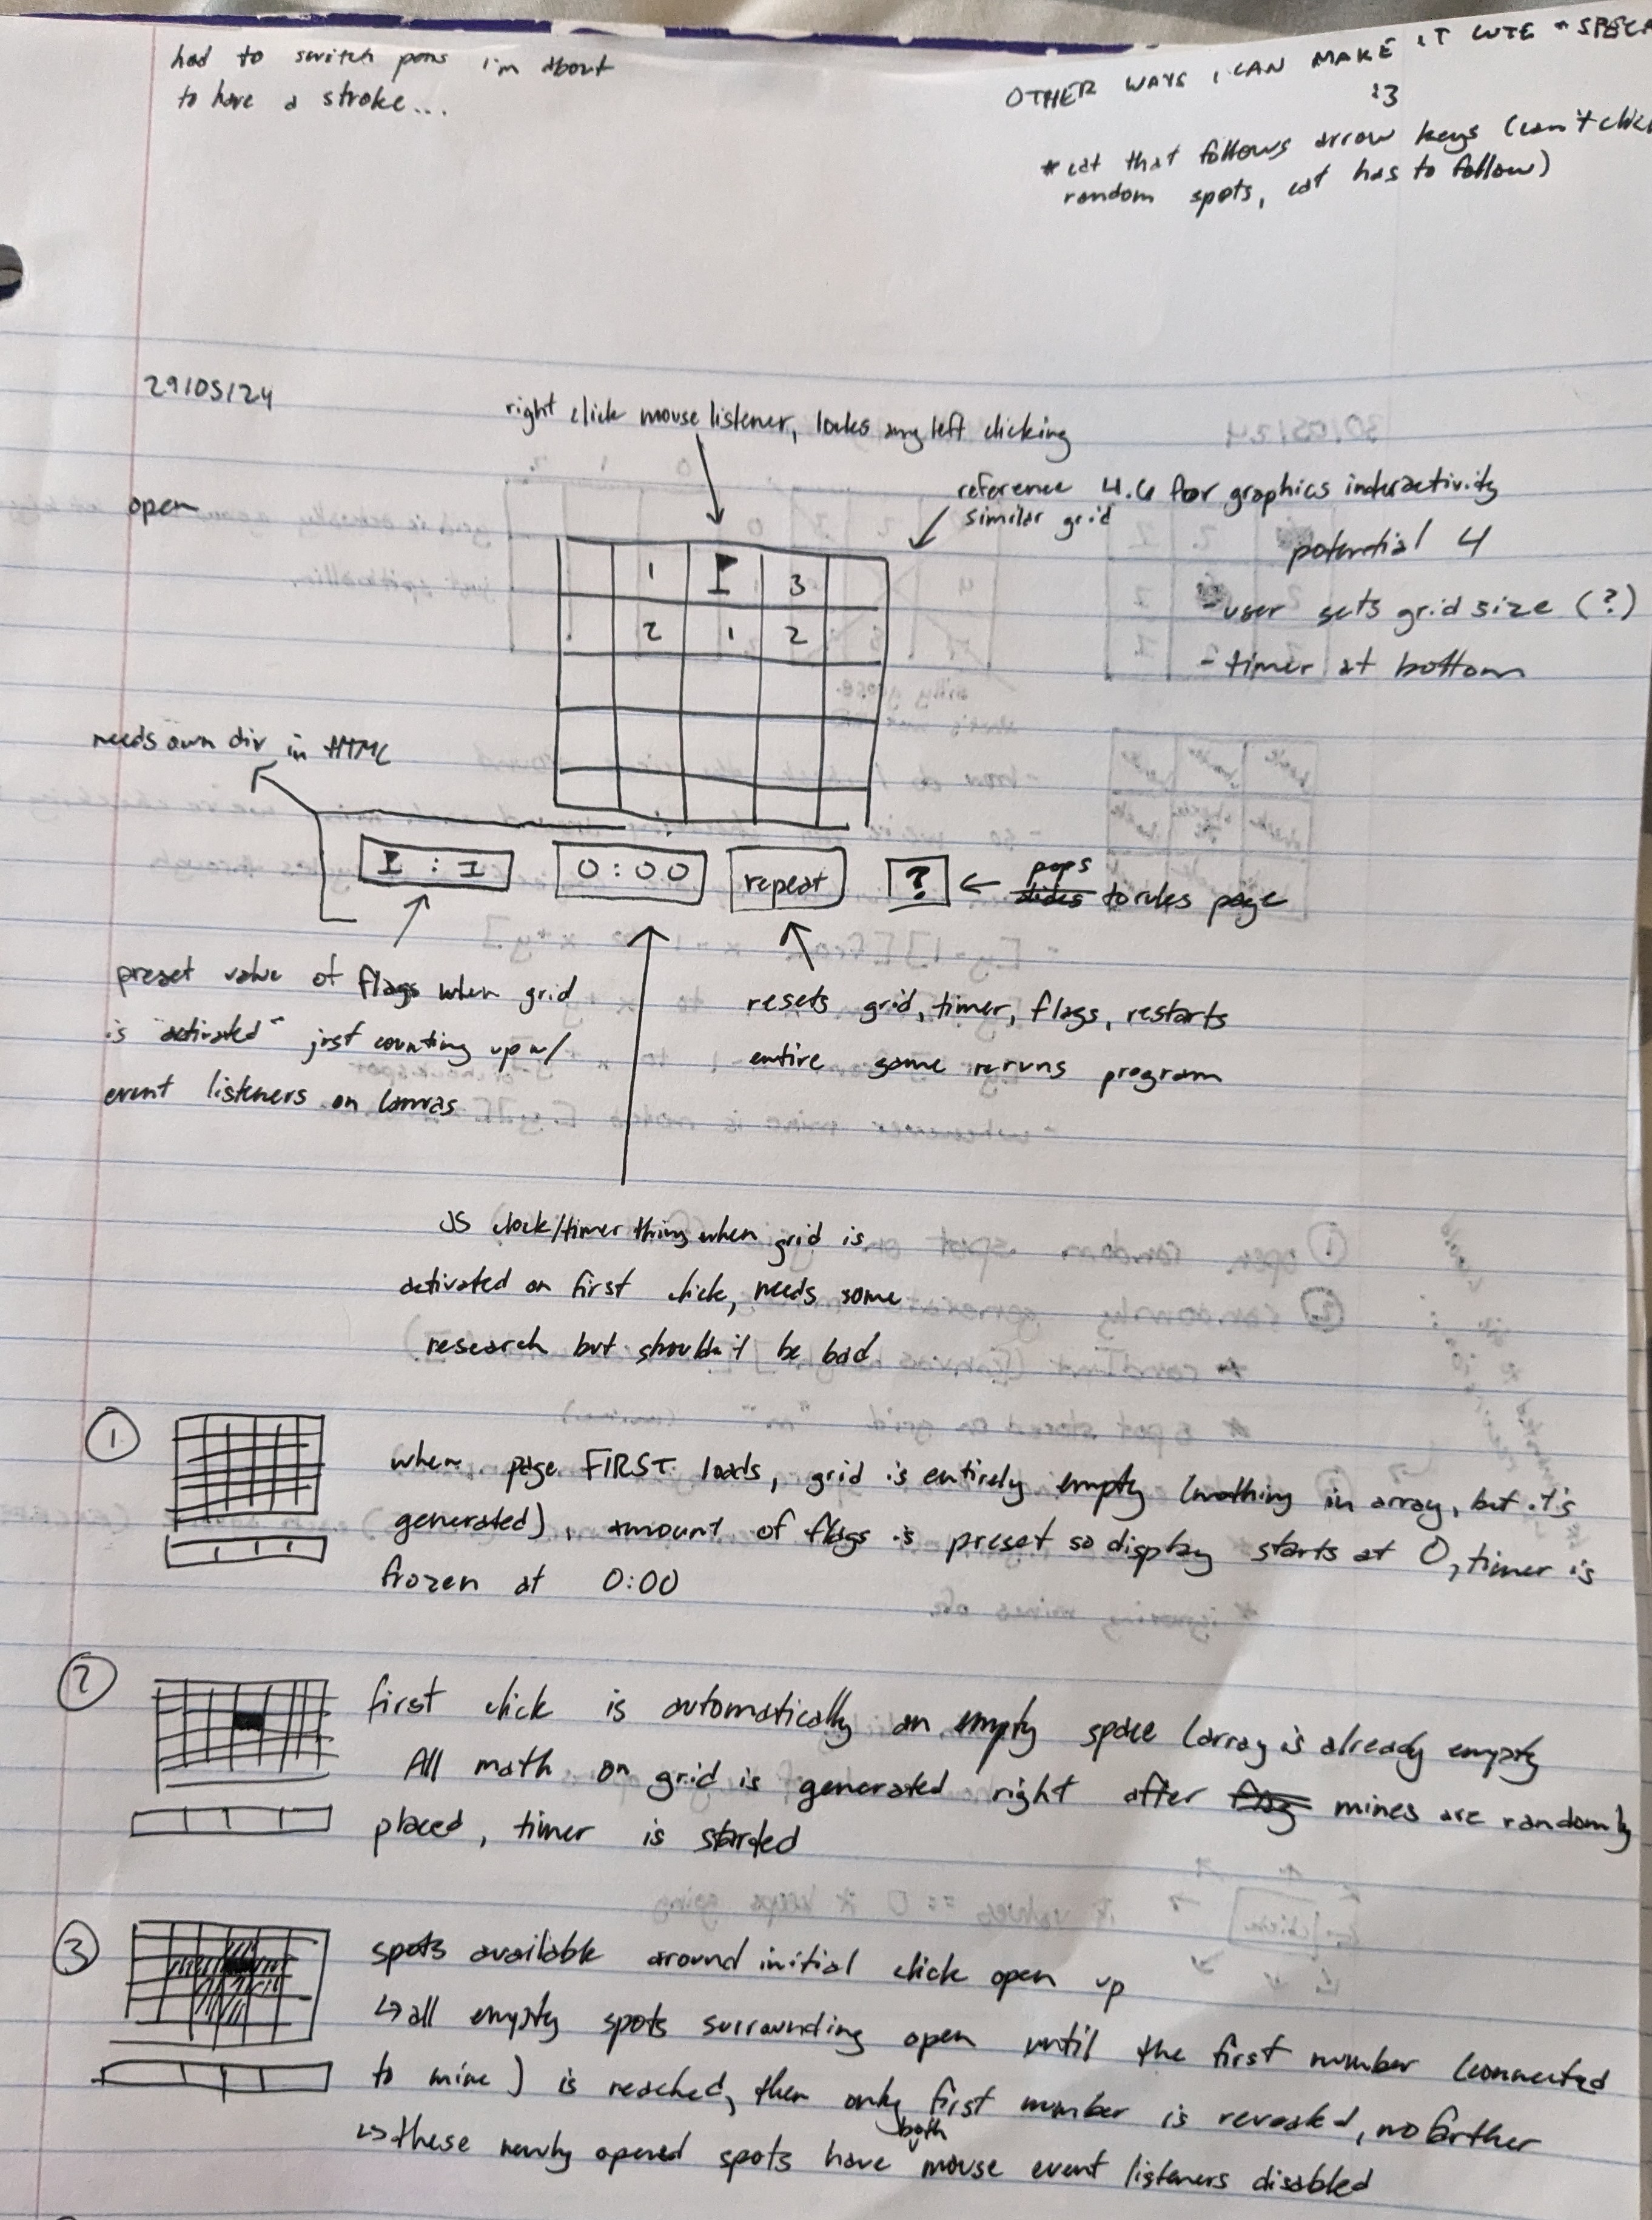 had to switch pens i'm about
to have a stroke...
OTHER WAYS I CAN MAKE IT CUTE + SPECIA
:3
* cat that follows arrow keys (can't click
random spots, cat has to follow)
29/05/24
right click mouse listener, locks any left clicking
open
reference 4.6 for graphics interactivity
similar grid
potential 4
- user sets grid size (?)
- timer at bottom
1 3
2 1 2
needs own div in HTML
0:00
repeat
?
pops
slides to rules page
preset value of flags when grid
is "activated" just counting up w/
event listeners on canvas
resets grid, timer, flags, restarts
entire game reruns program
JS clock/timer thing when grid is
activated on first click, needs some
research but shouldn't be bad
1
when page FIRST loads, grid is entirely empty (nothing in array, but it's
generated), amount of flags is preset so display starts at 0, timer is
frozen at 0:00
2
first click is automatically an empty space (array is already empty
All math on grid is generated right after flag mines are randomly
placed, timer is started
3
spots available around initial click open up
↳ all empty spots surrounding open until the first number (connected
to mine) is reached, then only first number is revealed, no farther
↳ these newly opened spots have both mouse event listeners disabled